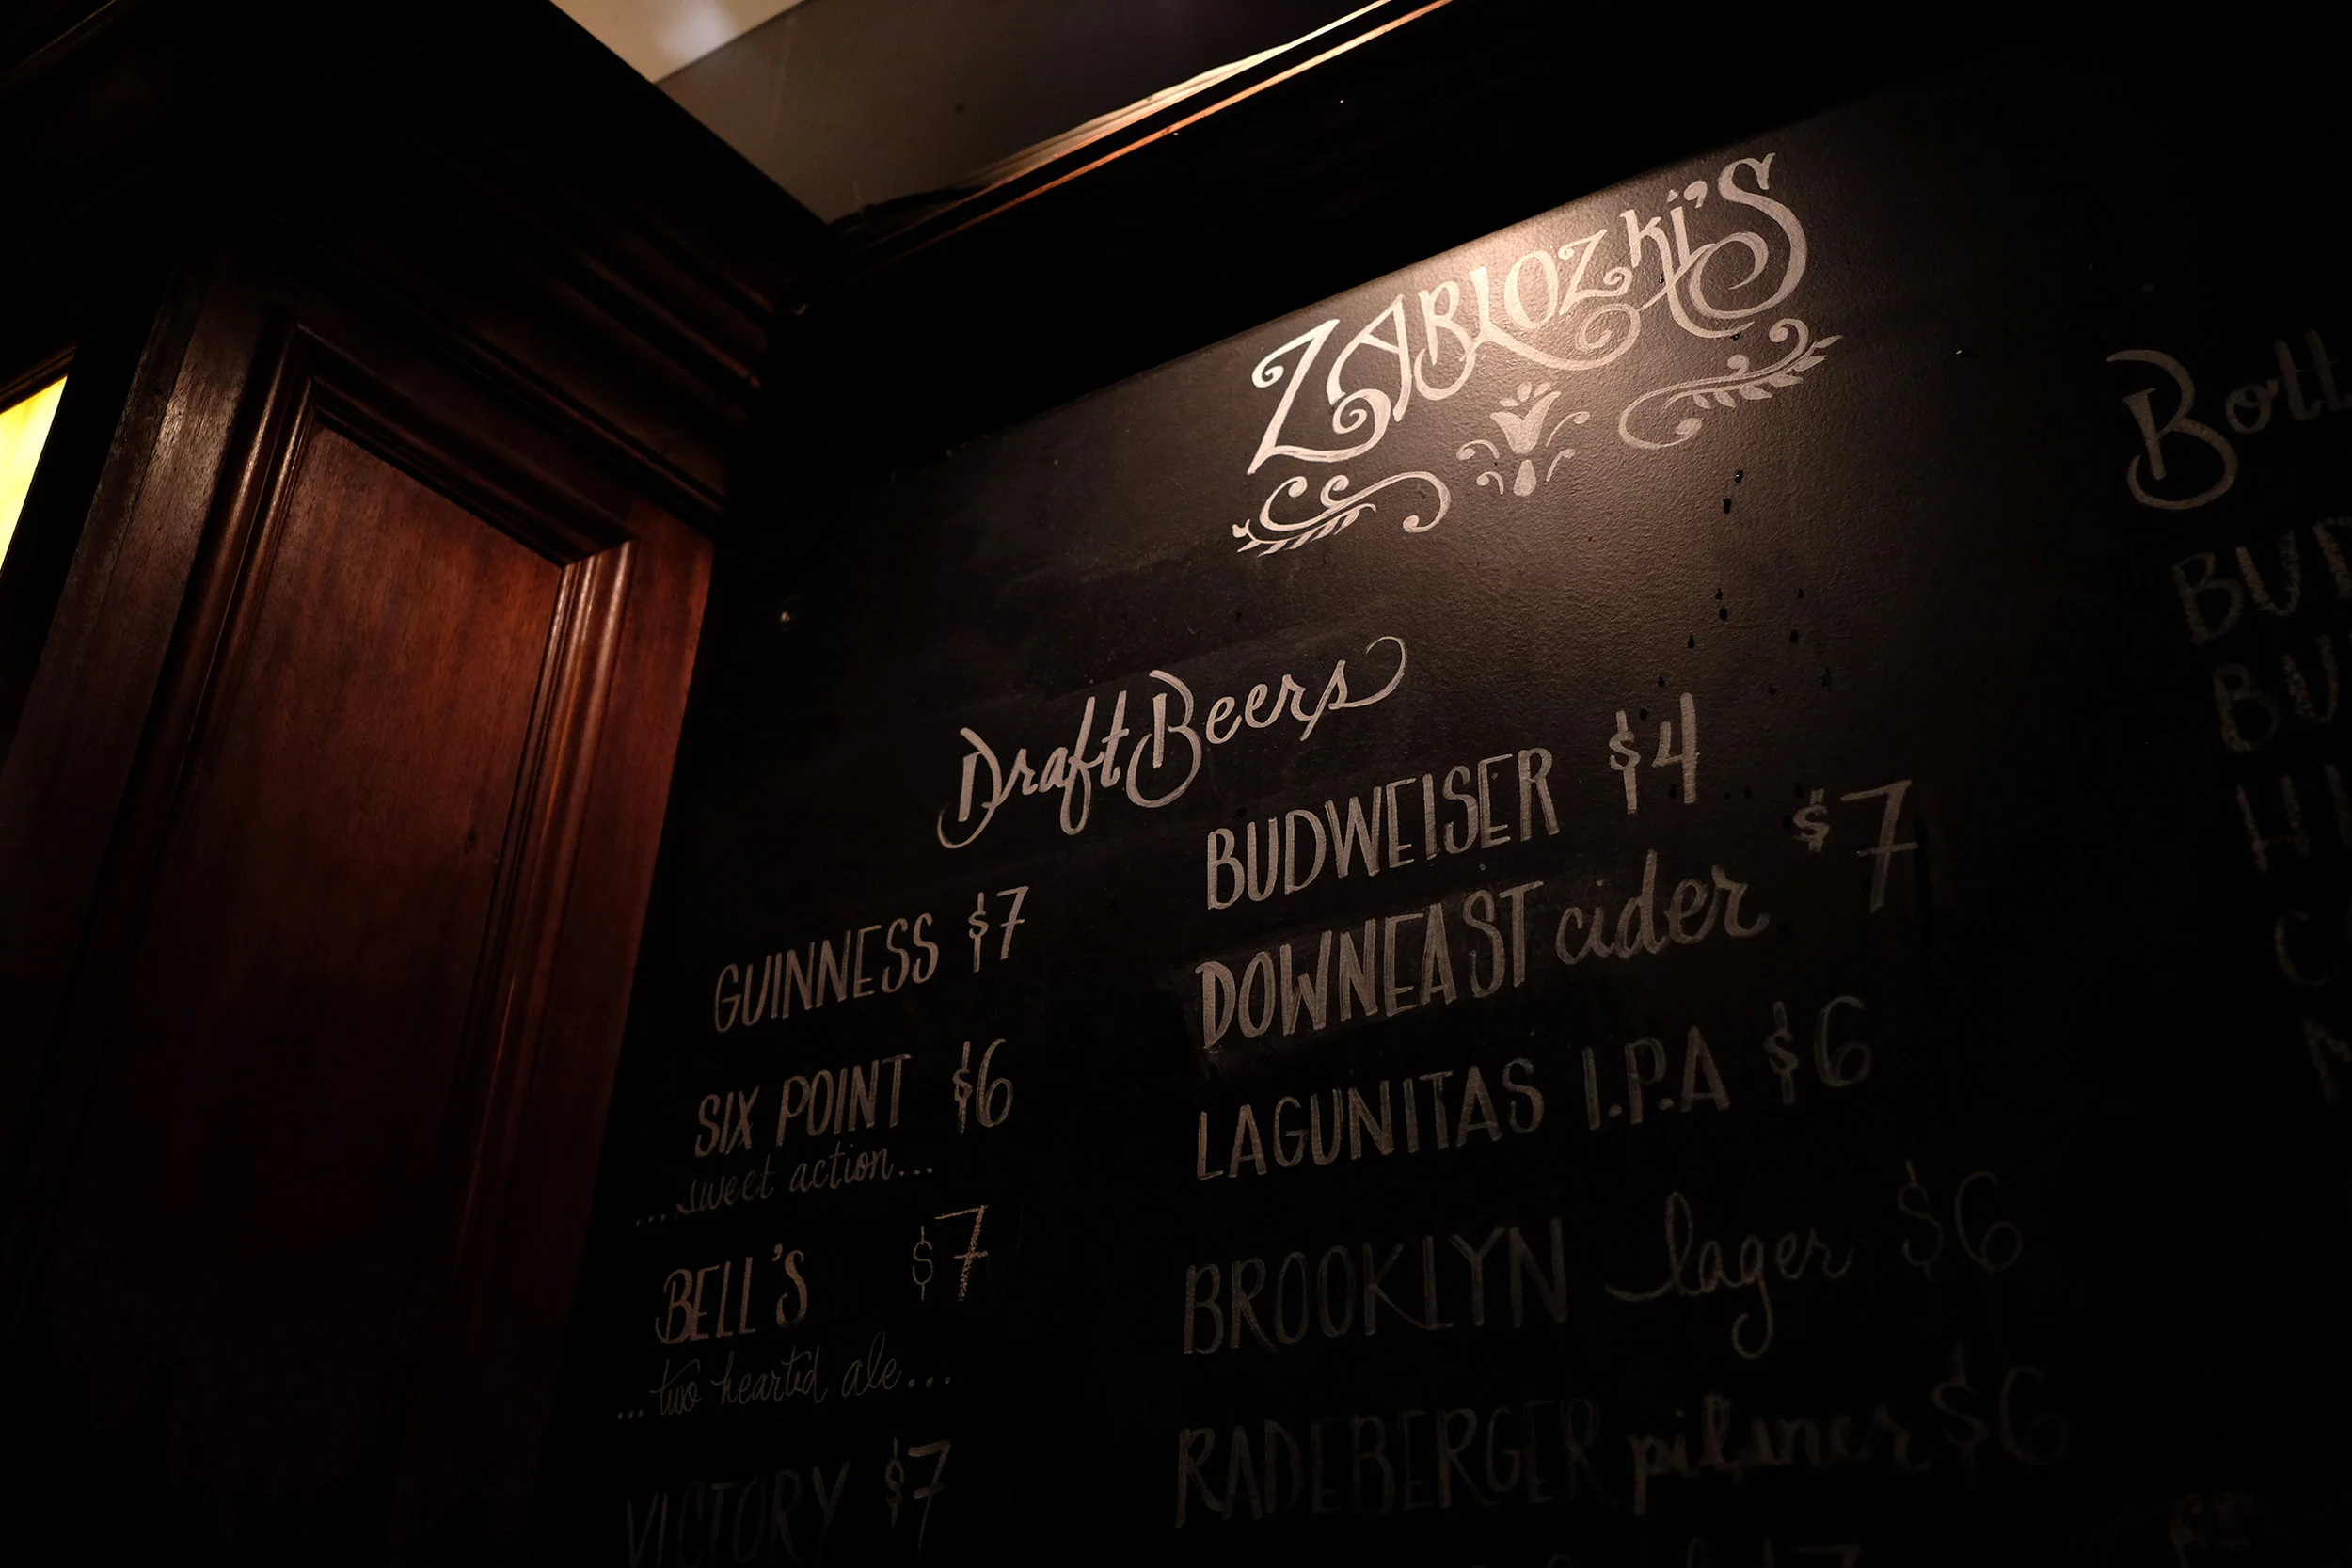 ZABLOZKi'S
Draft Beers
GUINNESS $7
SIX POINT $6
....sweet action...
BELL'S $7
...two hearted ale...
VICTORY $7
BUDWEISER $4
DOWNEAST cider $7
LAGUNITAS I.P.A $6
BROOKLYN lager $6
RADEBERGER pilsner $6